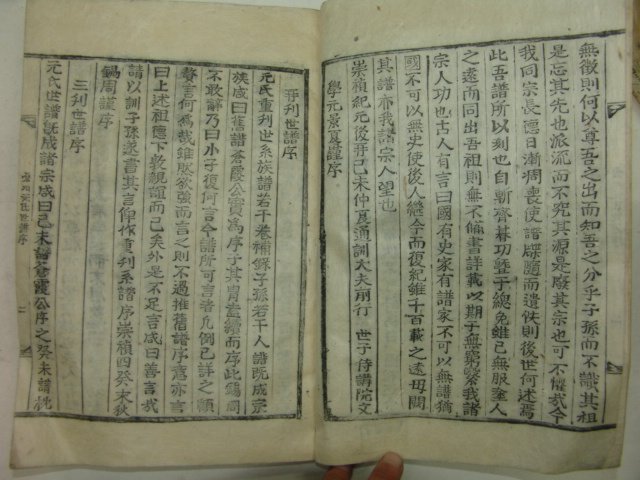 無徵則何以尊吾之出而知吾之分乎子孫而不識其祖
是忘其先也派流而不究其源是廢其宗也可不懼哉今
我同宗長德日漸凋喪使譜牒隨而遺佚則後世何述焉
此吾譜所以刻也自斬齊朞功曁于緦免雖已無服塗人
之遠而同出吾祖則無不備書詳載以期于無窮繄我諸
宗人功也古人有言曰國有史家有譜家不可以無譜猶
國不可以無史使後人繼今而復紀雖千百載之遠毋闕
其譜亦我諸宗人望也
崇禎紀元後再己未仲夏通訓大夫前行 世子侍講院文
學元景夏謹序
再刋世譜序
元氏重刋世系族譜若干卷補錄子孫若干人譜旣成宗
族咸曰舊譜蒼霞公實爲序子其胄盍續而序此錫周
不敢辭乃曰小子復何言今譜所可言者凡例已詳之顧
贅言何爲哉雖欲強而言之則不過推舊譜序舊亦言
曰上述祖德下敦親誼而已矣外是不足言咸曰善言哉
請以訓子孫遂書其言俾作重刋系譜序崇禎四癸未秋
錫周謹序
三刋世譜序
元氏世譜旣成諸宗咸曰己未譜蒼霞公序之癸未譜